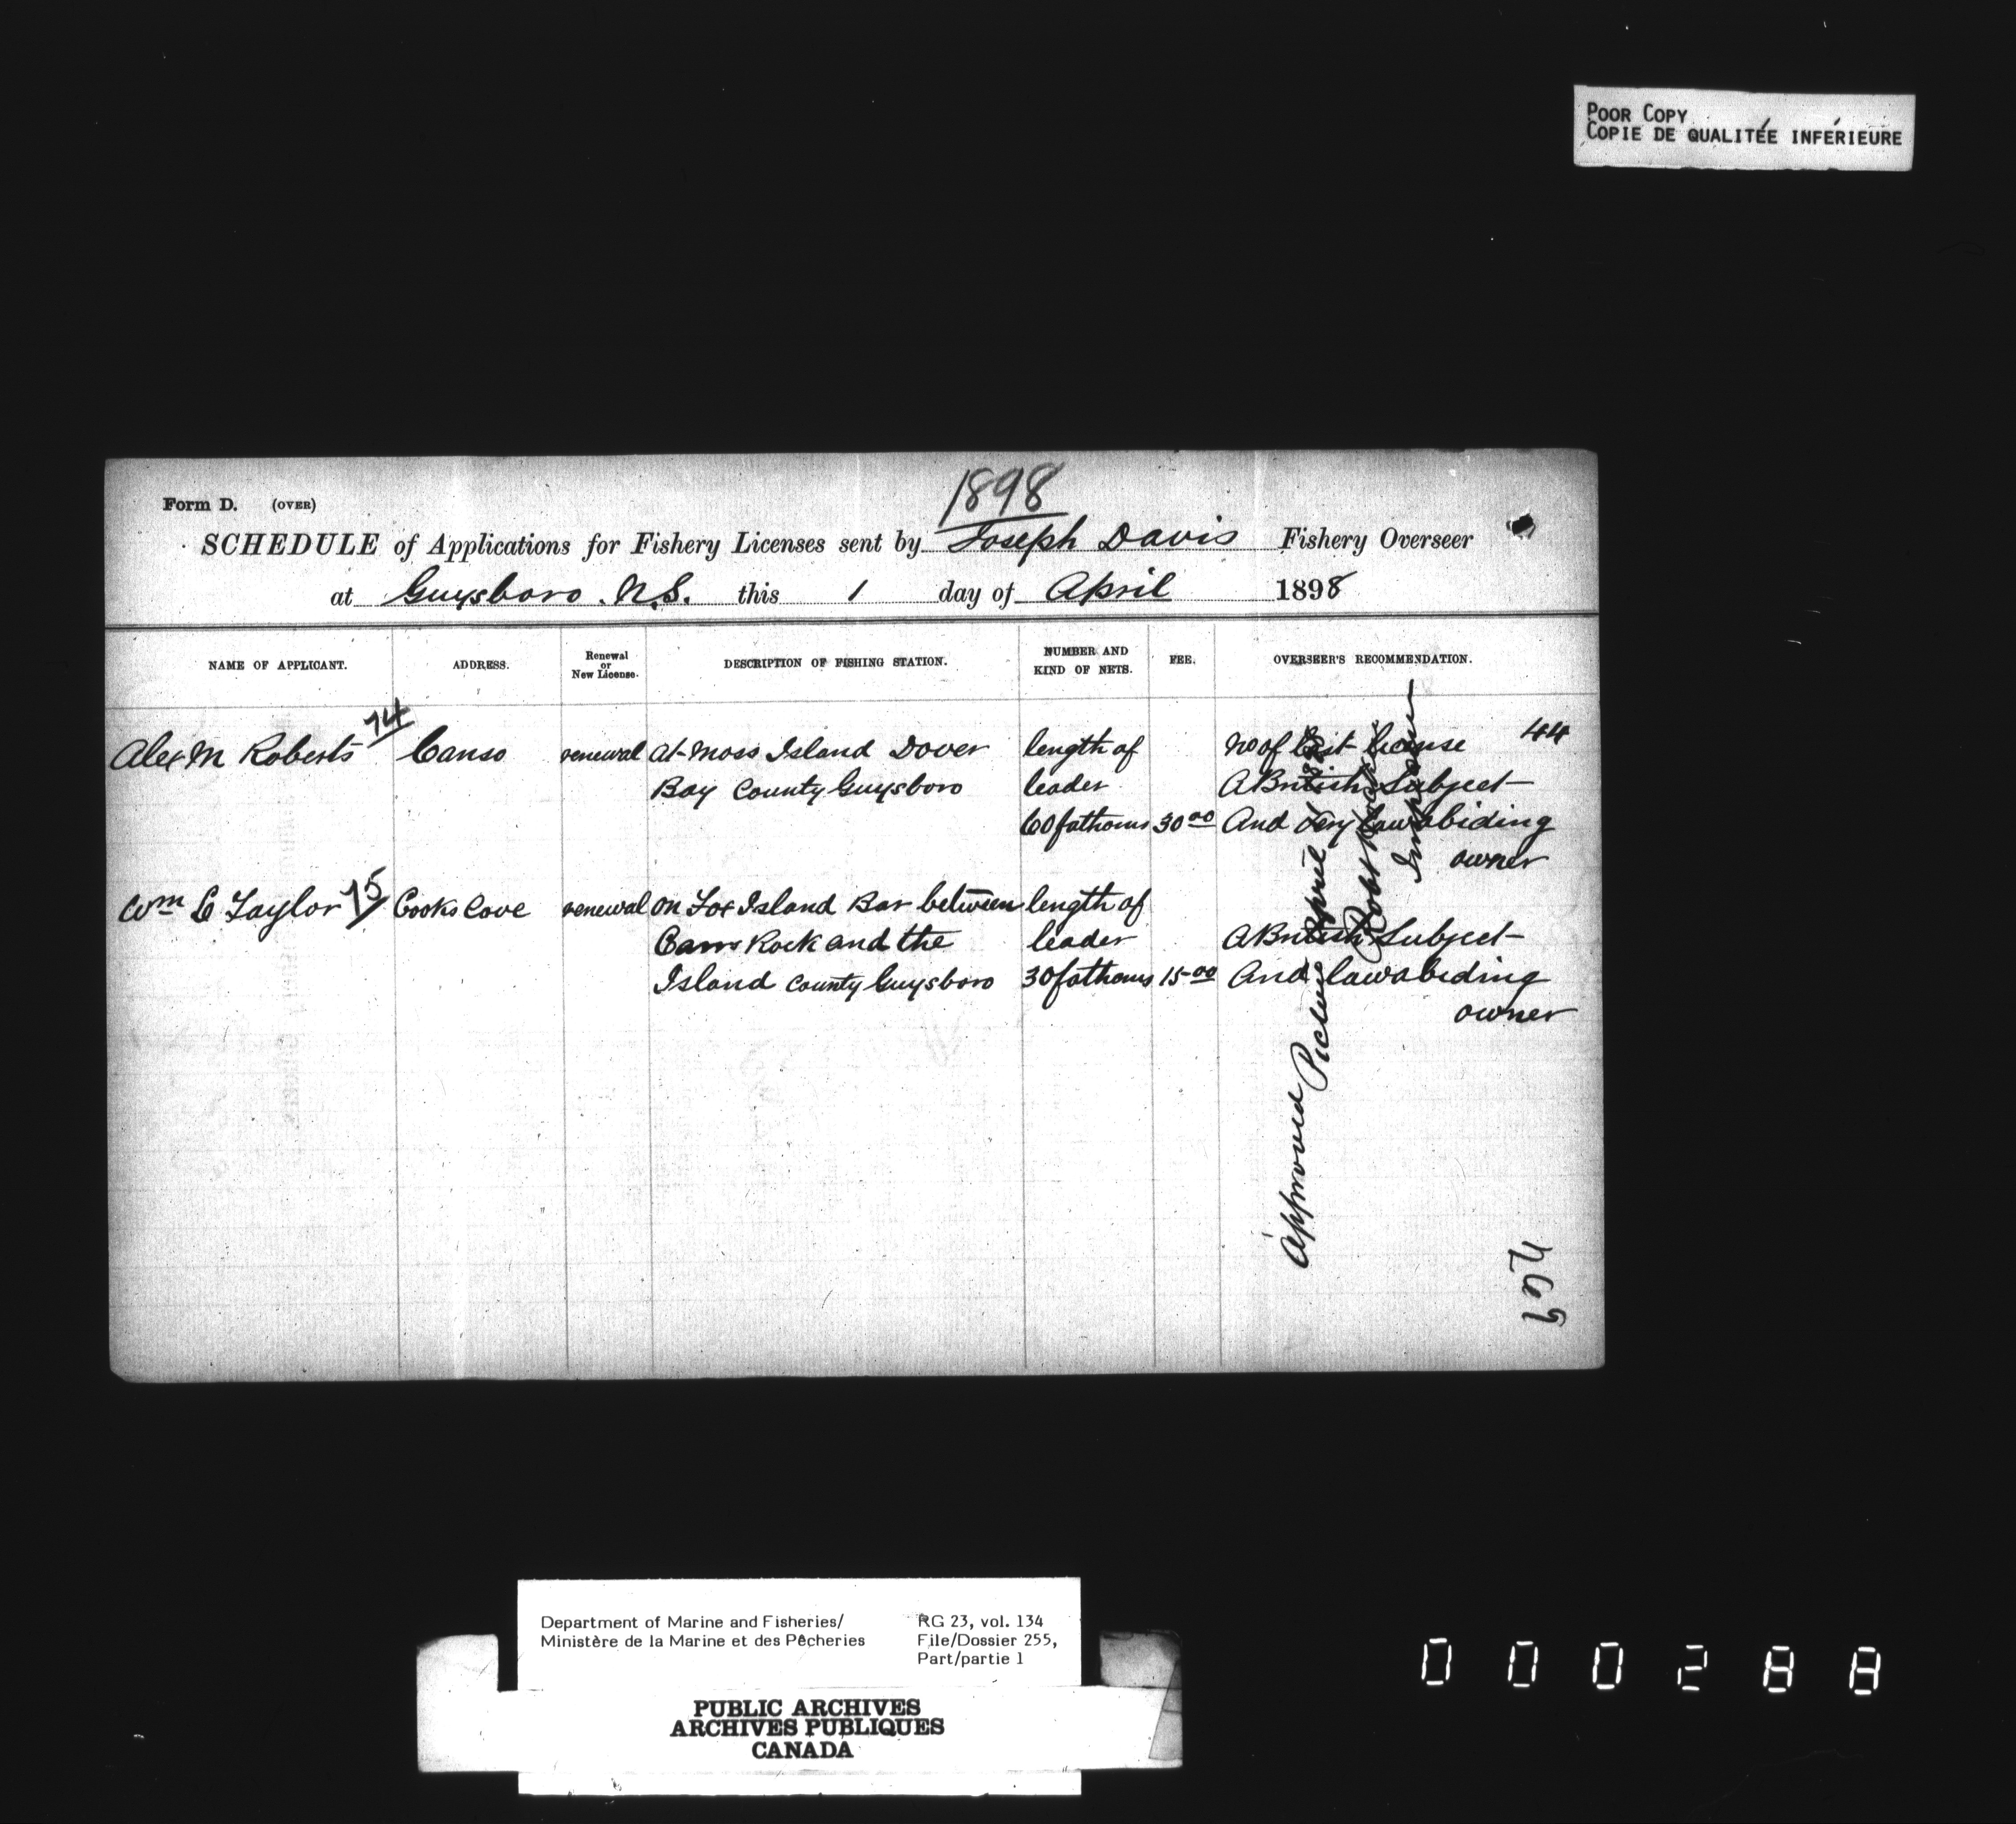 POOR COPY
COPIE DE QUALITÉE INFÉRIEURE
1898
Form D. (OVER)
SCHEDULE of Applications for Fishery Licenses sent by Joseph Davis Fishery Overseer
at Guysboro. N.S. this 1 day of April 1898
NAME OF APPLICANT. ADDRESS. Renewal or New License. DESCRIPTION OF FISHING STATION. NUMBER AND KIND OF NETS. FEE. OVERSEER'S RECOMMENDATION.
74
Alex M Roberts Canso renewal At Moss Island Dover length of No of last license 44
Bay County Guysboro leader A British Subject
60 fathoms 30 00 And very lawabiding
owner
Wm C Taylor 75 Cooks Cove renewal on Fox Island Bar between length of
Cams Rock and the leader A British Subject
Island County Guysboro 30 fathoms 15-00 And lawabiding
owner
Approved Pictou April 1898
Robt
Inspector
769
Department of Marine and Fisheries/
Ministère de la Marine et des Pêcheries
RG 23, vol. 134
File/Dossier 255,
Part/partie 1
PUBLIC ARCHIVES
ARCHIVES PUBLIQUES
CANADA
000288